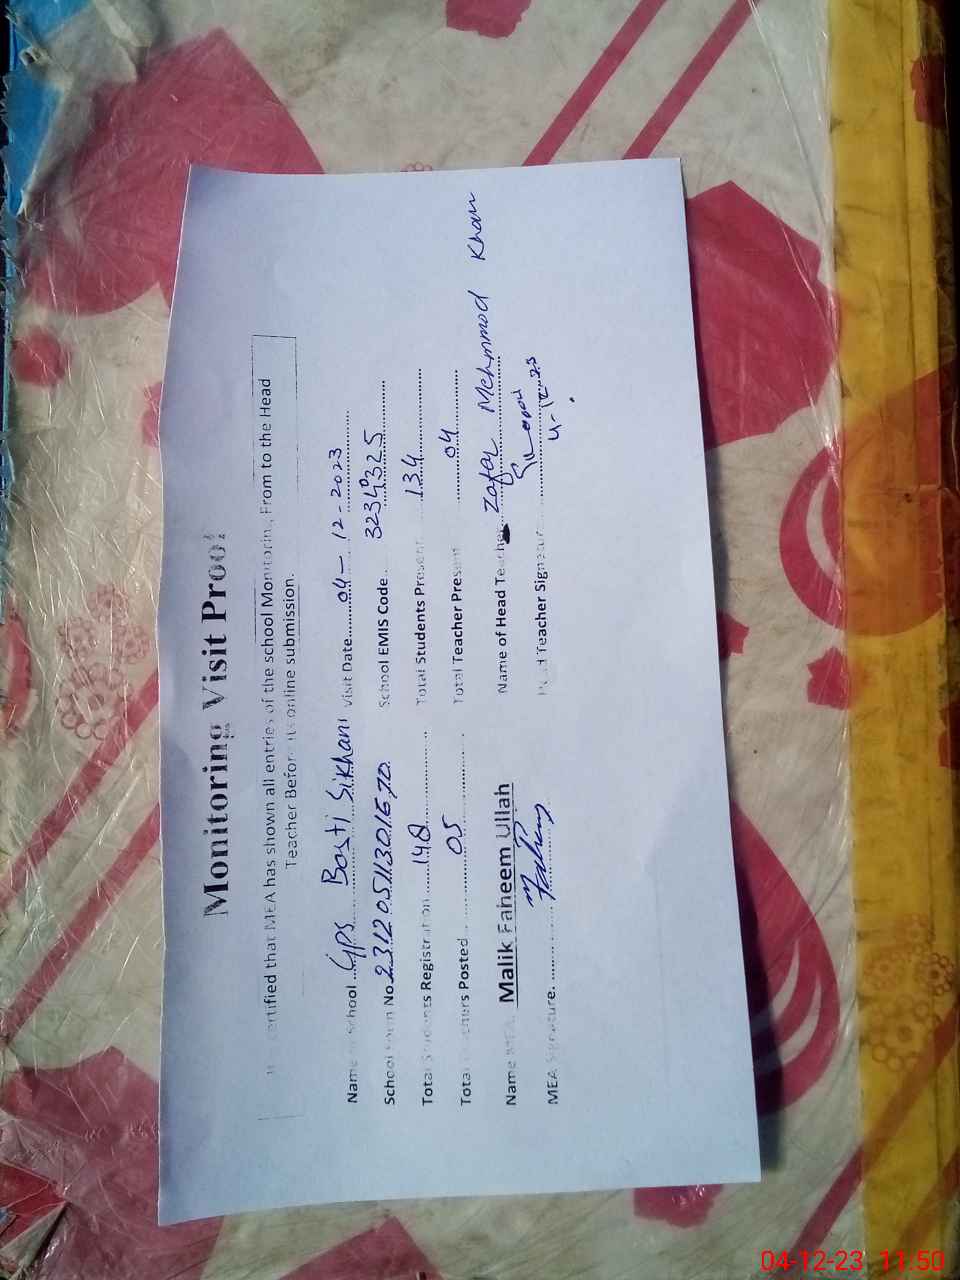 Monitoring Visit Proof
certified that MEA has shown all entries of the school Monitoring, From to the Head
Teacher Before its online submission.
Name school ...GPS Basti Sikhani Visit Date..........04-12-2023
School No.23120511301670. School EMIS Code... 32340325
Total Students Registration ......148.......... Total Students Present ...134..........
Total Teachers Posted ..........05.......... Total Teacher Present ..........04..........
Name MEA. Malik Faheem Ullah Name of Head Teacher...Zafar Mehmmod Khan
MEA Signature. .......... Head Teacher Signature..........
4-12-23
04-12-23 11:50